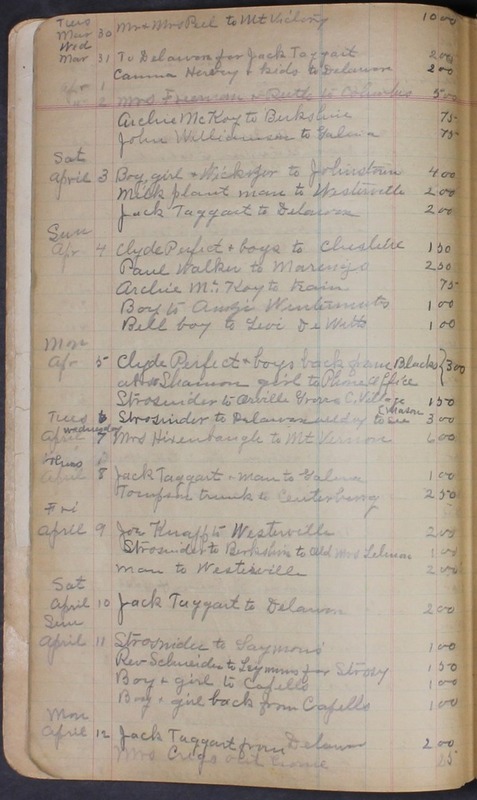 Tues
Mar 30 Mr & Mrs Bell to Mt Victory 10 00
Wed
Mar 31 To Delaware for Jack Taggart 2 00
Hervey & kids to Delaware 2 00
Apr 1
" 2 Mrs Freeman & Ruth to Columbus 5 00
Archie McKoy to Berkshire 75
John Williamson to Galena 75
Sat
April 3 Boy, girl & to Johnstown 4 00
Milk plant man to Westerville 2 00
Jack Taggart to Delaware 2 00
Sun
Apr 4 Clyde Perfect & boys to Cheshire 1 50
Paul Walker to Marengo 2 50
Archie McKoy to train 75
Boy to Wintermuts 1 00
Bell boy to Levi DeWitts 1 00
Mon
Apr 5 Clyde Perfect & boys back from Blacks } 3 00
Shannon girl to Phone Office
Strosnider to Orville Grove C. Village 1 50
Tues 6 Strosnider to Delaware to see C Mason 3 00
Wednesday
April 7 Mrs Hixenbaugh to Mt Vernon 6 00
Thurs
April 8 Jack Taggart & man to Galena 1 00
Tompson trunk to Centerburg 2 50
Fri
April 9 Joe Knapp to Westerville 2 00
Strosnider to Berkshire to old Mrs 1 00
Man to Westerville 2 00
Sat
April 10 Jack Taggart to Delawar 2 00
Sun
April 11 Strosnider to Saymons 1 00
Rev Schneider to Seymons for Strosy 1 50
Boy & girl to Capells 1 00
Boy & girl back from Capells 1 00
Mon
April 12 Jack Taggart from Delawar 2 00
Mrs old home 25